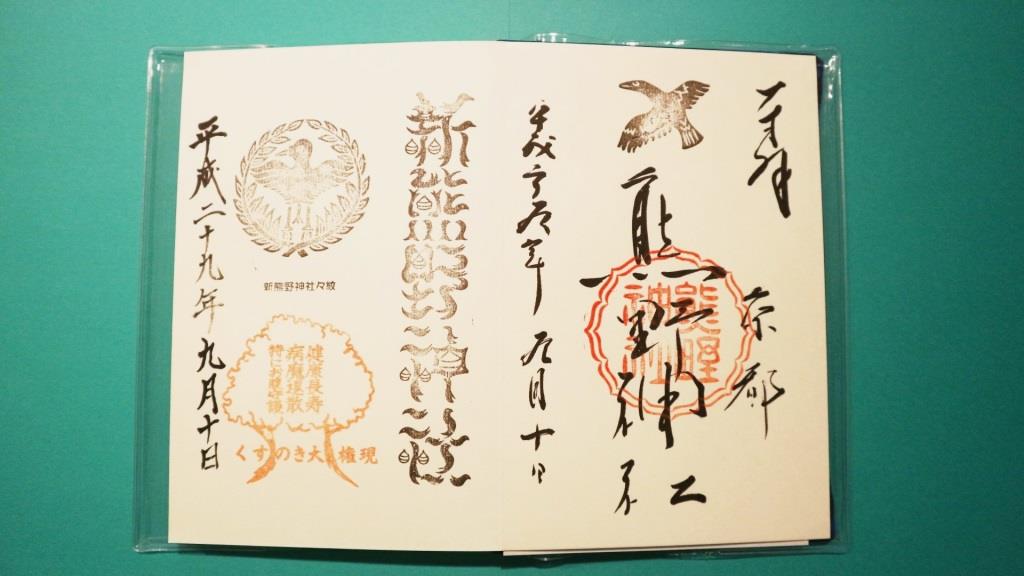 奉拝
京都
熊野神社
熊野
神社
平成二十九年
九月十日
新熊野神社
新熊野神社々紋
健康長寿
病魔退散
特にお腹守護
くすのき大権現
平成二十九年九月十日